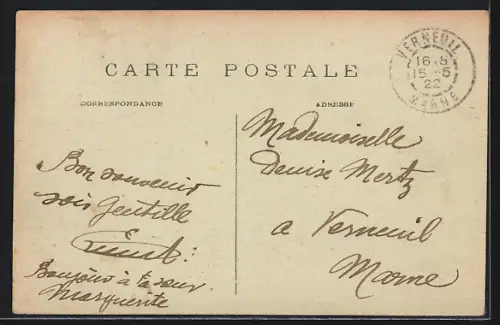 CARTE POSTALE
CORRESPONDANCE
ADRESSE
VERNEUIL
16 5
15 - 5
22
MARNE
Bon souvenir
sois Gentille
Bonjour à ta sœur
Marguerite
Mademoiselle
Denise Mertz
a Verneuil
Marne